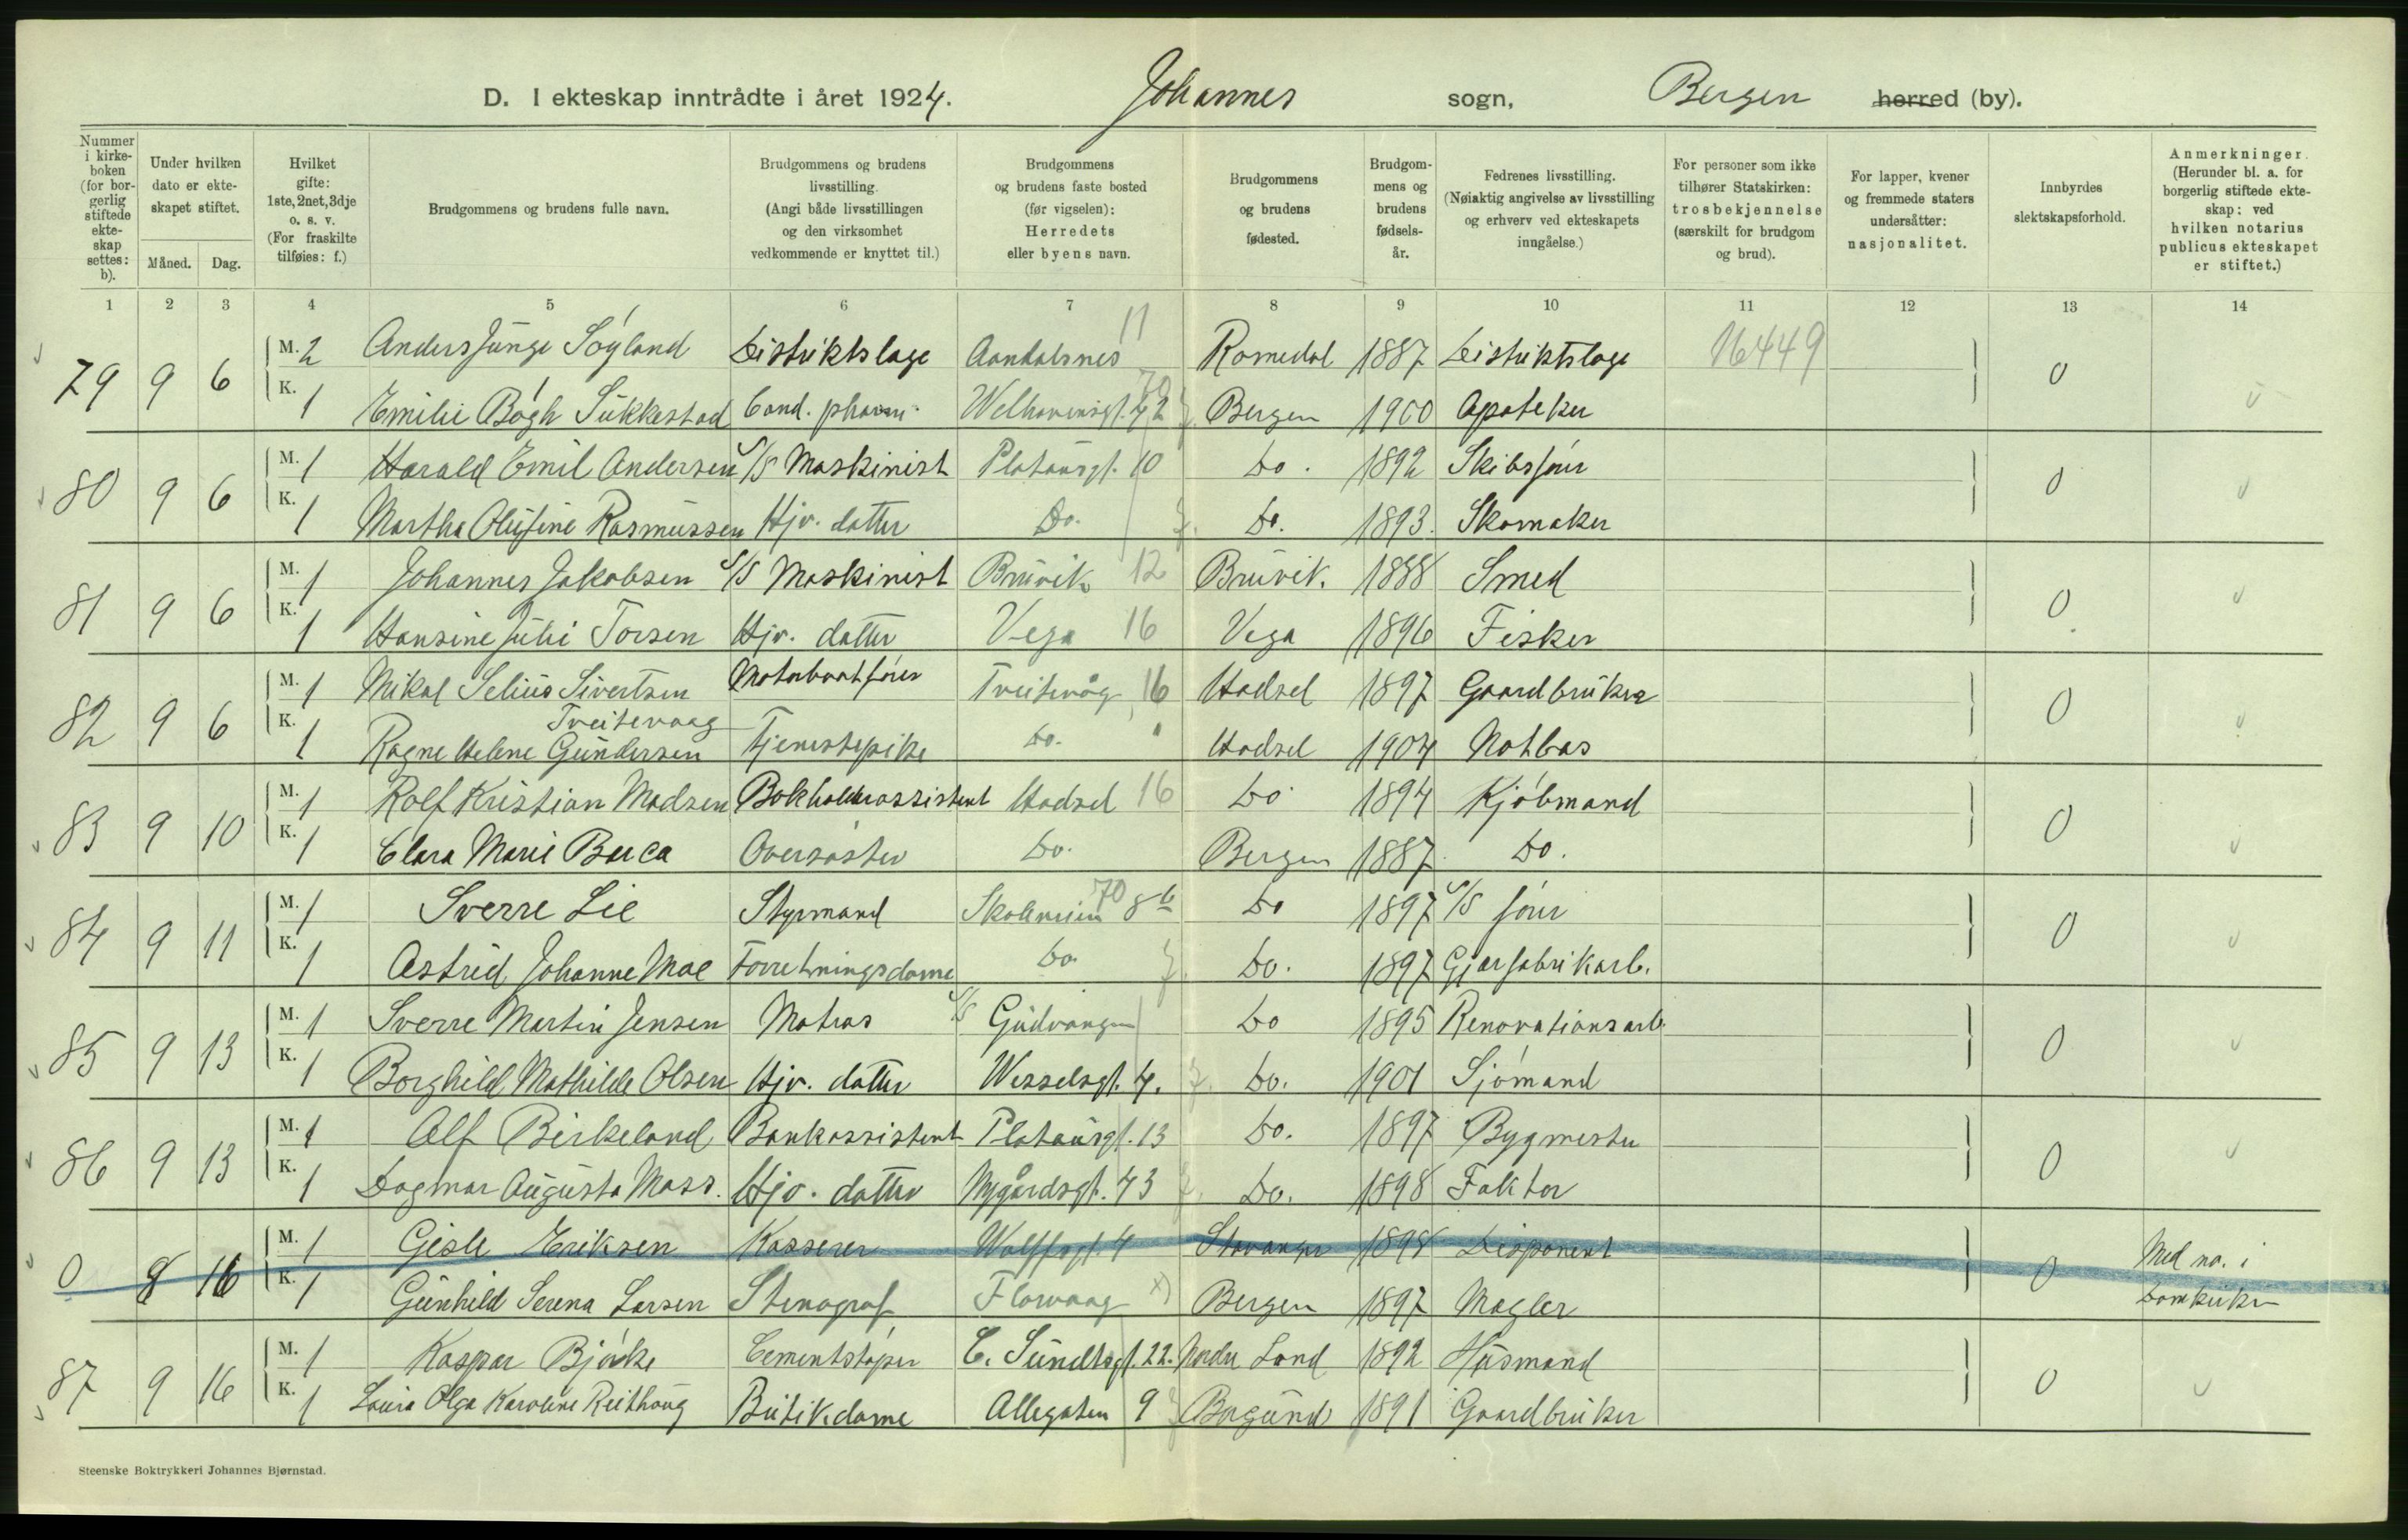 D. I ekteskap inntrådte i året 1924. Johannes sogn, Bergen herred (by).
Nummer i kirkeboken (for borgerlig stiftede ekteskap settes: b).
Under hvilken dato er ekteskapet stiftet.
Måned. Dag.
Hvilket gifte: 1ste, 2net, 3dje o. s. v. (For fraskilte tilføies: f.)
Brudgommens og brudens fulle navn.
Brudgommens og brudens livsstilling. (Angi både livsstillingen og den virksomhet vedkommende er knyttet til.)
Brudgommens og brudens faste bosted (før vigselen): Herredets eller byens navn.
Brudgommens og brudens fødested.
Brudgommens og brudens fødselsår.
Fedrenes livsstilling. (Nøiaktig angivelse av livsstilling og erhverv ved ekteskapets inngåelse.)
For personer som ikke tilhører Statskirken: trosbekjennelse (særskilt for brudgom og brud).
For lapper, kvener og fremmede staters undersåtter: nasjonalitet.
Innbyrdes slektskapsforhold.
Anmerkninger. (Herunder bl. a. for borgerlig stiftede ekteskap: ved hvilken notarius publicus ekteskapet er stiftet.)
1 2 3 4 5 6 7 8 9 10 11 12 13 14
79 9 6 M. 2 Anders Junge Söyland Distriktslæge Aandalsnes 11 Romsdal 1887 Distriktslæge 16449 0
K. 1 Emilie Bögh Sukkestad Cand. pharm. Welhavensgt. 42 70 Bergen 1900 Apoteker
80 9 6 M. 1 Harald Emil Andersen S/S Maskinist Platousgt. 10 Do. 1892 Skibsförer 0
K. 1 Martha Olufine Rasmussen Hjv. datter Do. Do. 1893. Skomaker
81 9 6 M. 1 Johannes Jakobsen S/S Maskinist Bruvik 12 Bruvik. 1888 Smed 0
K. 1 Hansine Julie Torsen Hjv. datter Vega 16 Vega 1896 Fisker
82 9 6 M. 1 Mikal Selius Sivertsen Treitevaag Motorbaatförer Treitevåg 16 Hadsel 1897 Gaardbruker 0
K. 1 Ragne Helene Gundersen Tjenestepike Do. " Hadsel 1904 Notbas
83 9 10 M. 1 Rolf Kristian Madsen Bokholderassistent Hadsel 16 Do. 1894 Kjöbmand 0
K. 1 Clara Marie Barca Oversöster Do. Bergen 1887 Do.
84 9 11 M. 1 Sverre Lie Styrmand 70 8 b Do 1897 S/S förer 0
K. 1 Astrid Johanne Moe Forretningsdame Do. Do. 1897 Gjærfabrikarb.
85 9 13 M. 1 Sverre Martin Jensen Matros S/S Gudvangen Do 1895 Renovationsarb. 0
K. 1 Borghild Mathilde Olsen Hjv. datter Wesselsgt. 4. Do. 1901 Sjömand
86 9 13 M. 1 Alf Birkeland Bankassistent Platousgt. 13 Do. 1897 Bygmester 0
K. 1 Dagmar Augusta Moss. Hjv. datter Nygårdsgt. 43 Do. 1898 Faktor
0 8 16 M. 1 Gisle Eriksen Kasserer Wolffsgt. 4 Stavanger 1898 Disponent 0 Med no. i Domkirken
K. 1 Gunhild Serena Larsen Stenograf Florvaag x) Bergen 1897 Mægler
87 9 16 M. 1 Kaspar Björke Cementstöper C. Sundtsgt. 22. Nordre Land 1892 Husmand 0
K. 1 Laura Olga Karoline Reithaug Butikdame Allegaten 9 Borgund 1891 Gaardbruker
Steenske Boktrykkeri Johannes Bjørnstad.